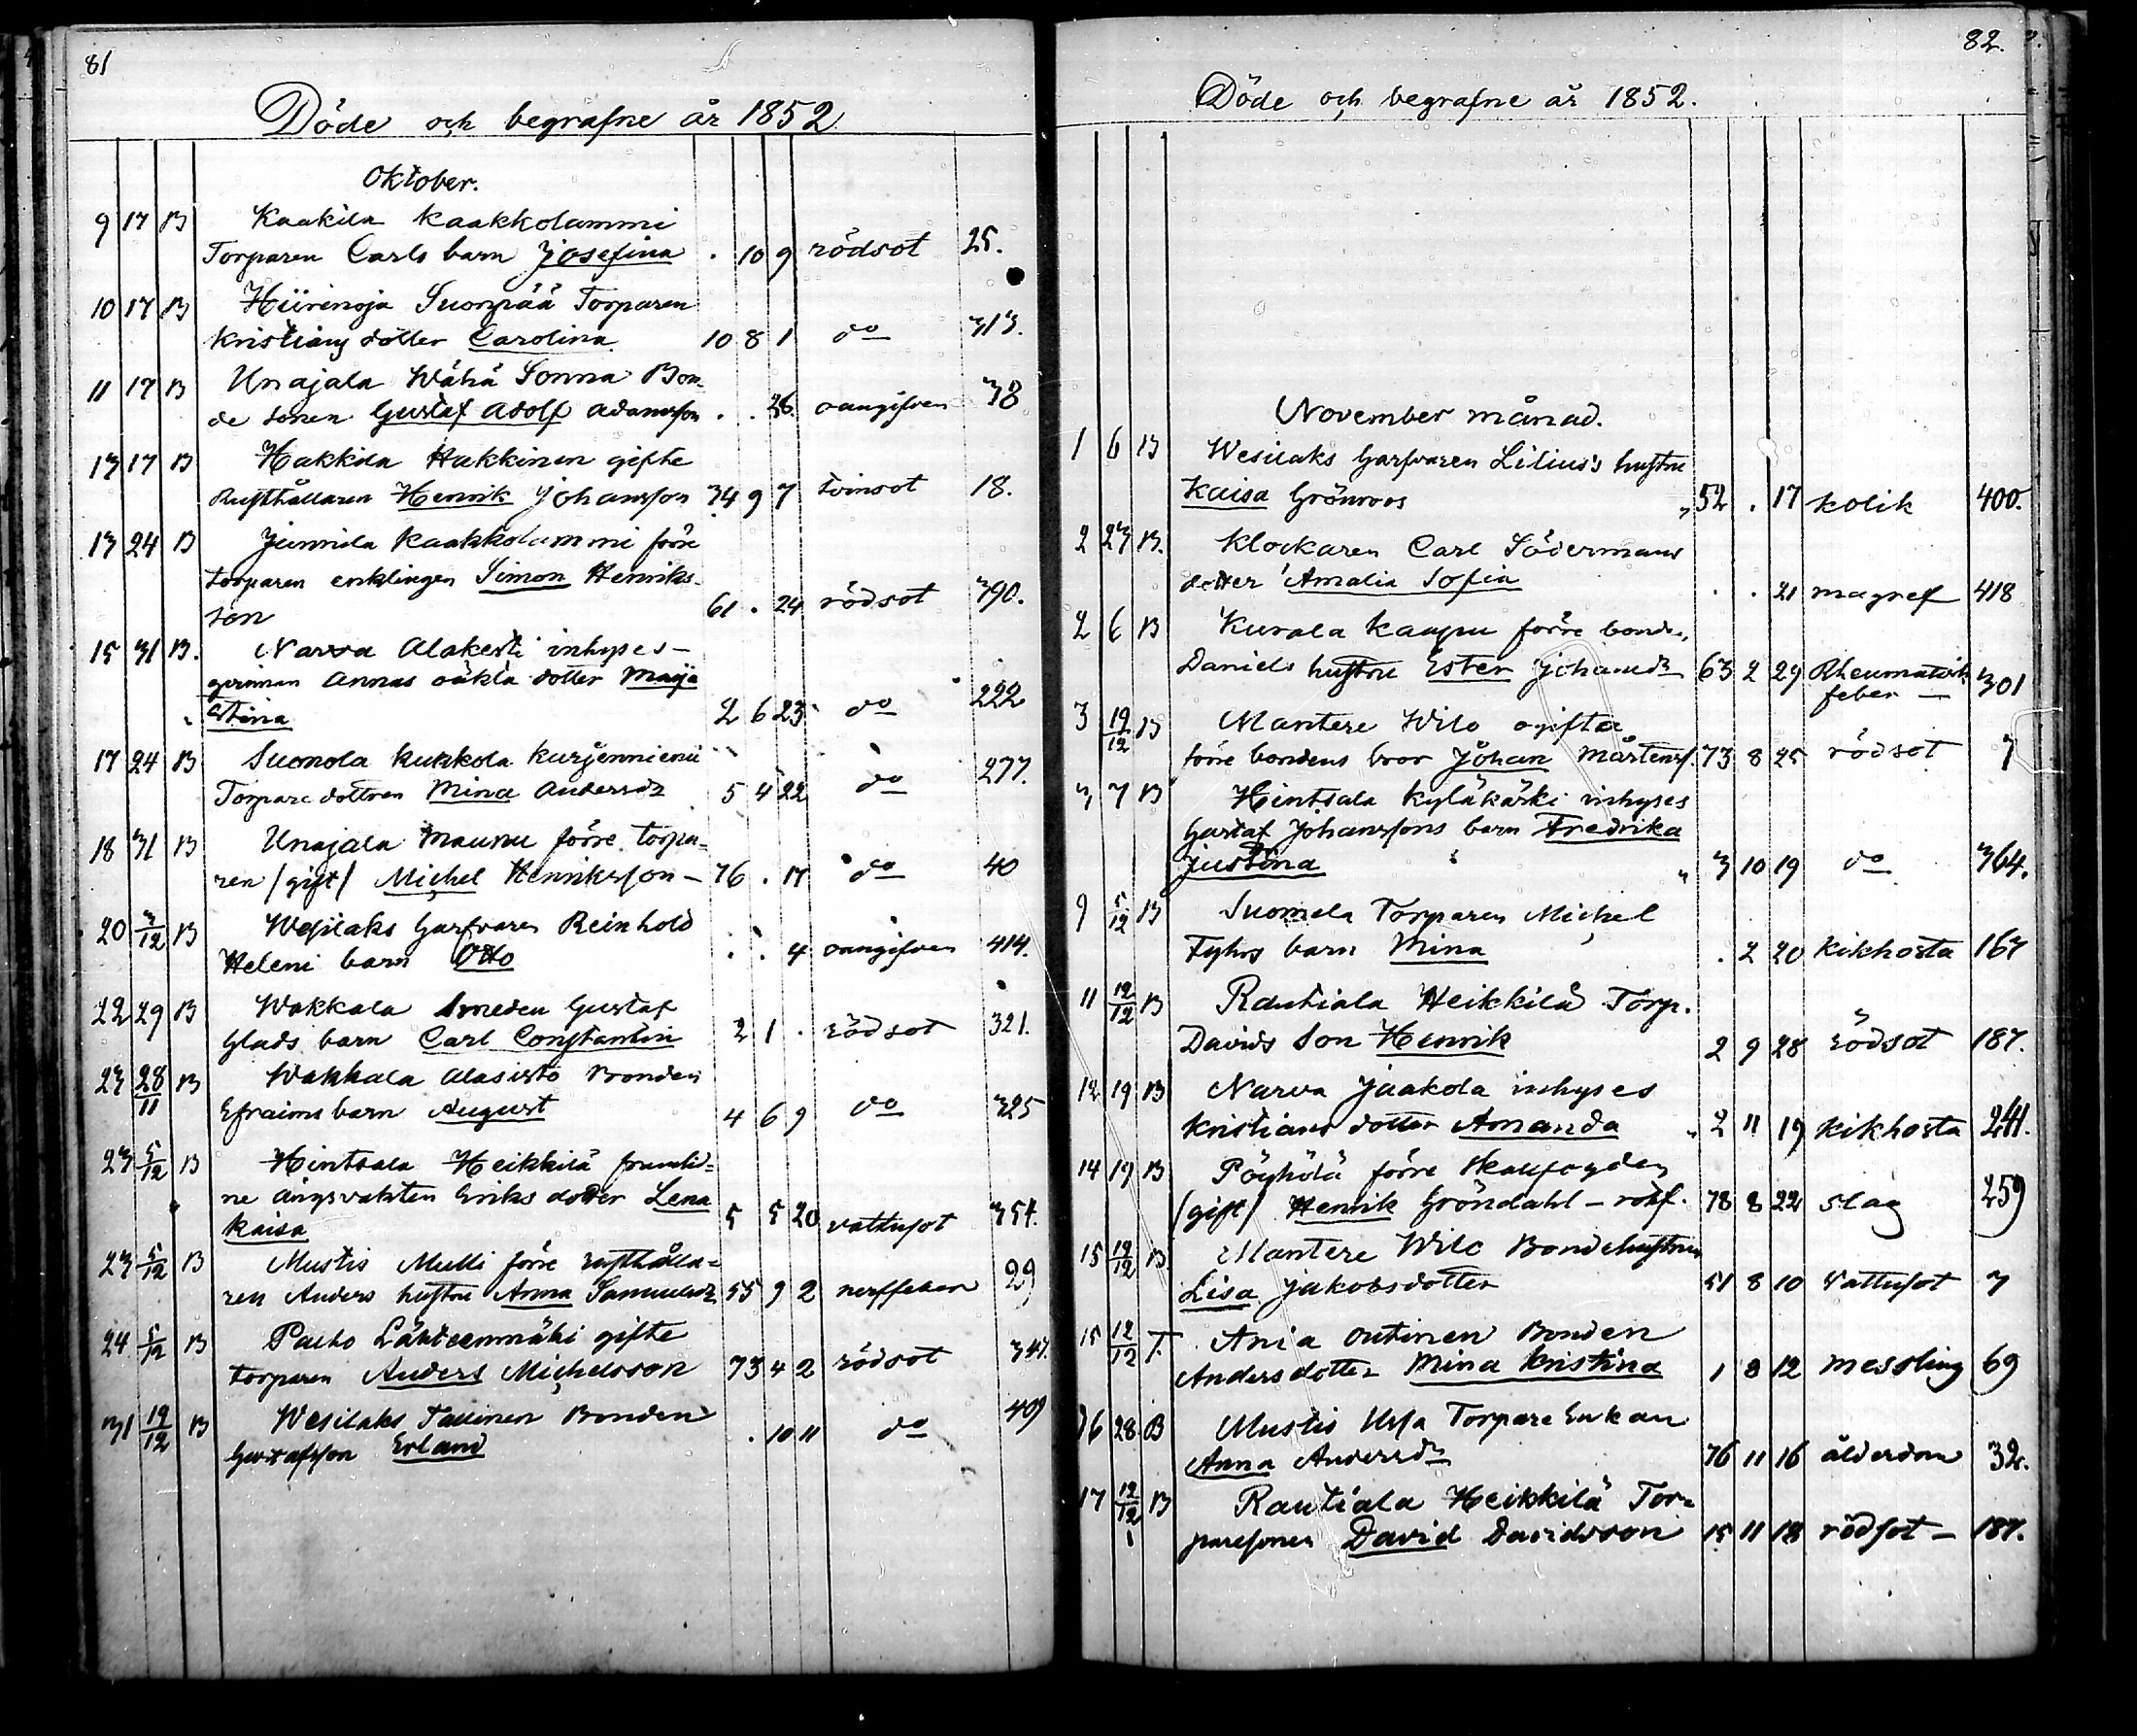 81
Döde och begrafne år 1852
Oktober.
9 17 B Kaakila Kaakkolammi
Torparen Carls barn Josefina . 10 9 rödsot 25.
10 17 B Hiirinoja Suonpää Torparen
Kristians dotter Carolina 10 8 1 do 313.
11 17 B Unajala Wähä Sonna Bon-
de sonen Gustaf Adolf Adamsson . . 26 oangifven 38
13 17 B Hakkila Hakkinen gifte
Rusthållaren Henrik Johansson 34 9 7 tvinsot 18.
13 24 B Junnila Kaakkolammi förre
torparen enklingen Simon Henriks-
son 61 . 24 rödsot 390.
15 31 B. Narva Alakesti inhyses-
qvinnan Annas oäkta dotter Maija
Stina 2 6 23 do 222
17 24 B Suomola Kukkola Kurjenniemi
Torpare dottren Mina Andersdr 5 4 22 do 277.
18 31 B Unajala Maunu förre torpa-
ren /gift/ Michel Henriksson — 76 . 17 do 40
20 3/12 B Wesilaks Garfvaren Reinhold
Heleni barn Otto . . 4 oangifven 414.
22 29 B Wakkala Smeden Gustaf
Glads barn Carl Constantin 2 1 . rödsot 321.
23 28/11 B Wakkala Alasisto Bonden
Efraims barn August 4 6 9 do 325
23 5/12 B Hintsala Heikkilä framlid-
ne ängsvakten Eriks dotter Lena
Kaisa 5 5 20 vattusot 354.
23 5/12 B Mustis Mulli förre rusthålla-
ren Anders hustru Anna Samuelsdr 55 9 2 nerffeber 29
24 5/12 B Palho Lähteenmäki gifte
torparen Anders Michelsson 73 4 2 rödsot 347.
31 19/12 B Wesilaks Tallinen Bonden
Gustafsson Erland . 10 11 do 409
82.
Döde och begrafne år 1852.
November månad.
1 6 B Wesilaks Garfvaren Lilius's hustru
Kaisa Grönroos 52 . 17 kolik 400.
2 23 B. Klockaren Carl Södermans
dotter Amalia Sofia . . 21 magref 418
2 6 B Kurala Kaupu förre bonden
Daniels hustru Ester Johansdr 63 2 29 Rheumatisk
feber — 301
3 19/12 B Mantere Wilo ogifta
förre bondens bror Johan Mårtenss. 73 8 25 rödsot 7
3 7 B Hintsala Kyläkärki inhyses
Gustaf Johanssons barn Fredrika
Justina 3 10 19 do 364.
9 5/12 B Suomela Torparen Michel
Fyhrs barn Mina . 2 20 Kikhosta 167
11 12/12 B Rautiala Heikkilä Torp.
Davids son Henrik 2 9 28 rödsot 187.
12 19 B Narva Jaakola inhyses
Kristians dotter Amanda 2 11 19 kikhosta 241.
14 19 B Pöyhölä förre
/gift/ Henrik Gröndahl — 78 8 22 slag 259
15 12/12 B Mantere Wilo Bondehustrun
Lisa Jakobsdotter 51 8 10 Vattusot 7
15 12/12 T. Ania Outinen Bonden
Anders dotter Mina Kristina 1 8 12 messling 69
16 28 B Mustis Torpare Enkan
Anna Andersdr 76 11 16 ålderdom 32.
17 12/12 B Rautiala Heikkilä Tor-
paresonen David Davidsson 15 11 18 rödsot — 187.